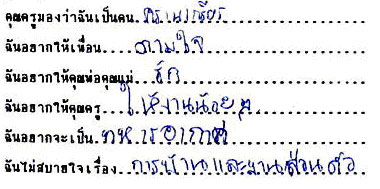 คุณครูมองว่าฉันเป็นคน
ฉันอยากให้เพื่อน ตามใจ
ฉันอยากให้คุณพ่อคุณแม่ รัก
ฉันอยากให้คุณครู ให้งานน้อยๆ
ฉันอยากจะเป็น ทหารอากาศ
ฉันไม่สบายใจเรื่อง การบ้านและงานส่วนตัว